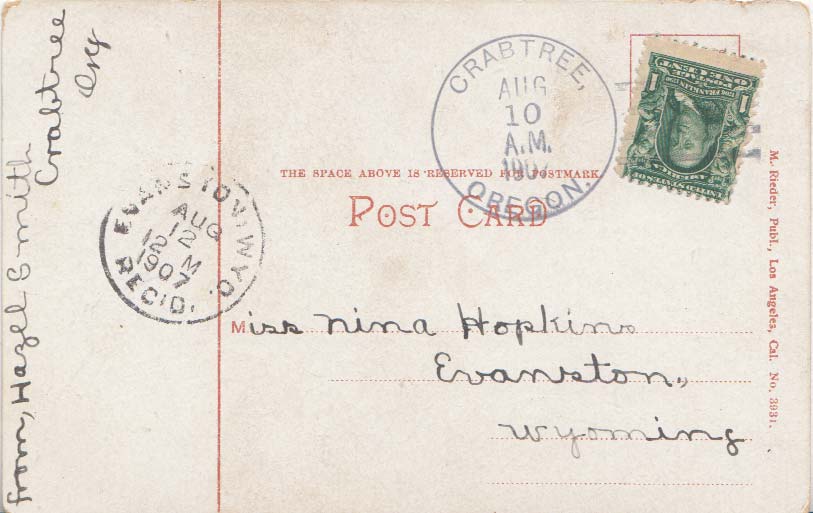 from, Hazel Smith
Crabtree
Org
CRABTREE,
AUG
10
A.M.
1907
OREGON.
POSTAGE
ONE CENT
1 1
THE SPACE ABOVE IS RESERVED FOR POSTMARK
POST CARD
EVANSTON, WYO.
AUG
12
12 M
1907
REC'D.
Miss Nina Hopkins
Evanston,
Wyoming
M. Rieder, Publ., Los Angeles, Cal. No. 3931.